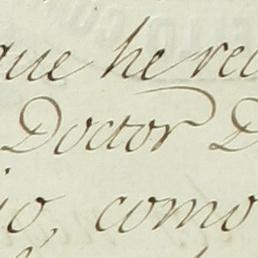 que he rec
Doctor D
io, como